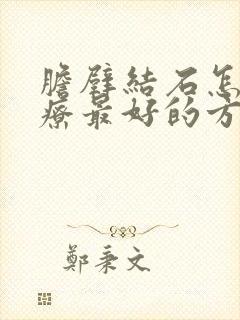 膽壁結石怎
療最好的方
鄭秉文